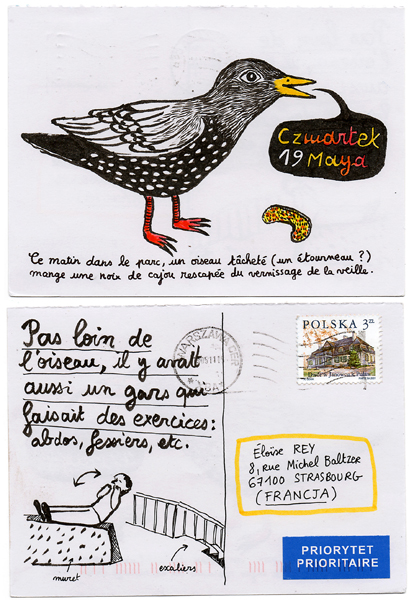 Czwartek
19 Maya
Ce matin dans le parc, un oiseau tâcheté (un étourneau ?)
mange une noix de cajou rescapée du vernissage de la veille.
Pas loin de
l'oiseau, il y avait
aussi un gars qui
faisait des exercices :
abdos, fessiers, etc.
muret
escaliers
WARSZAWA
POLSKA 3 ZŁ
Éloïse REY
8, rue Michel Baltzer
67100 STRASBOURG
(FRANCJA)
PRIORYTET
PRIORITAIRE